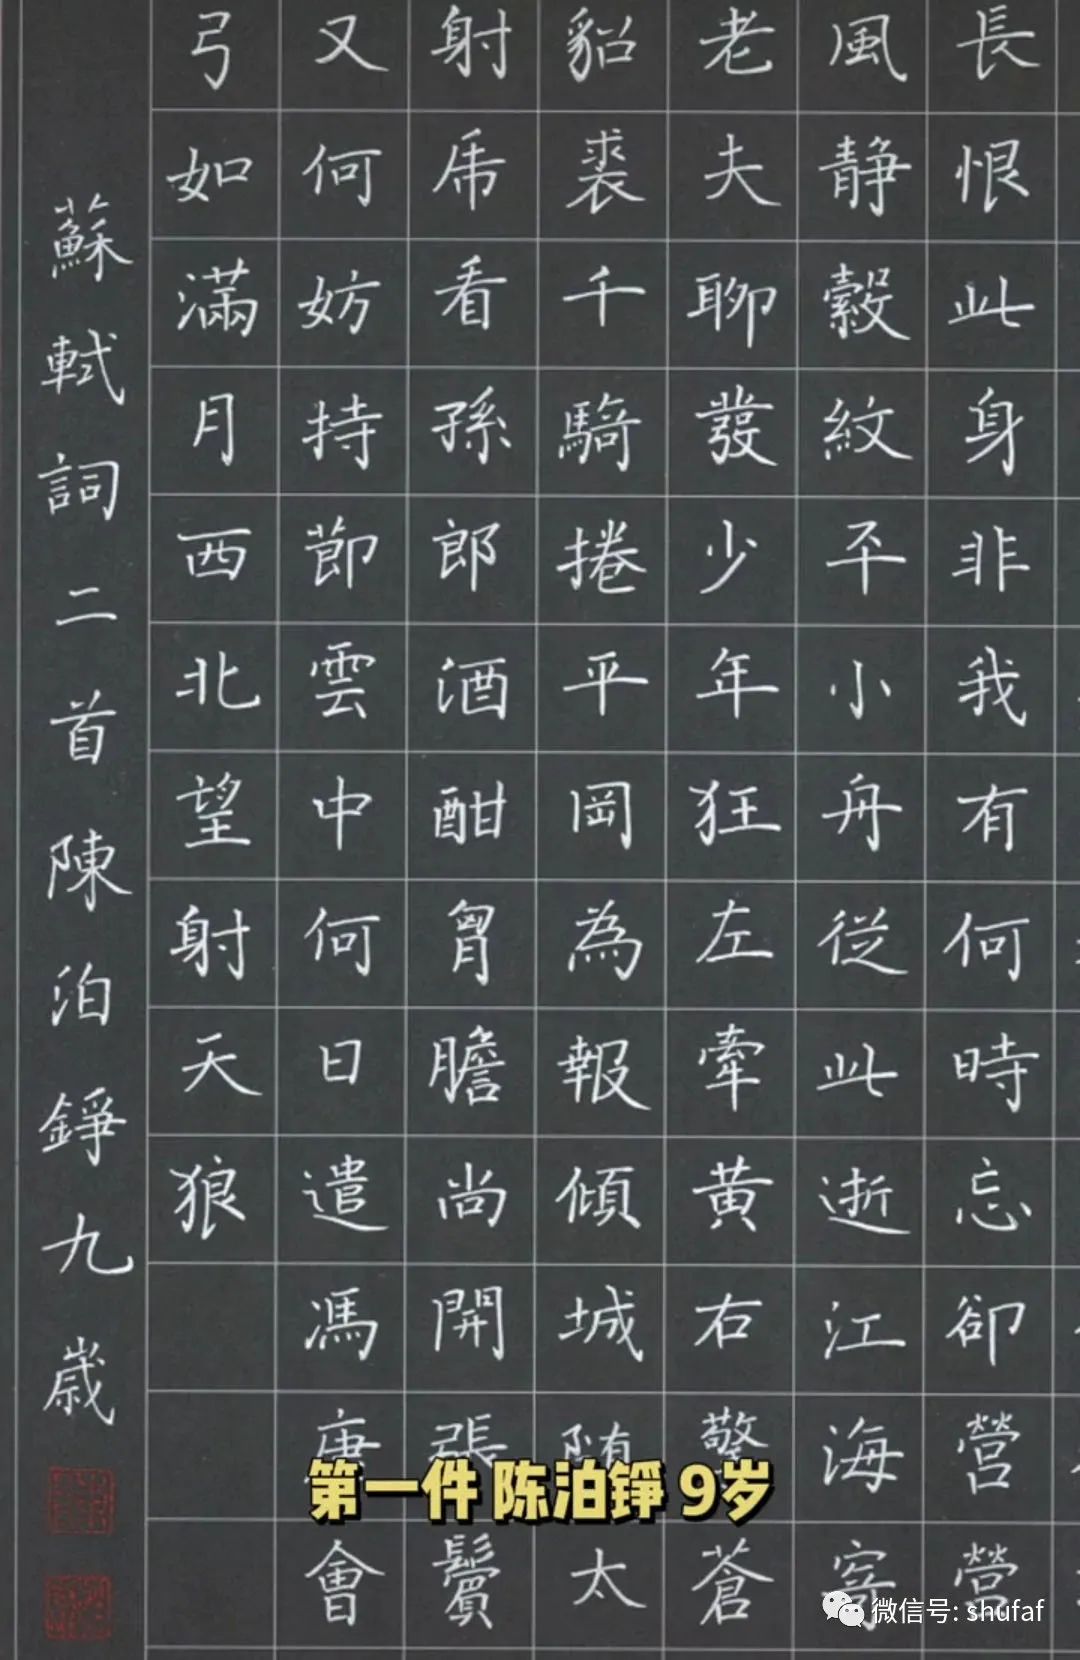 長恨此身非我有何時忘卻營營
風靜縠紋平小舟從此逝江海寄
老夫聊發少年狂左牽黃右擎蒼
貂裘千騎捲平岡為報傾城随太
射虎看孫郎酒酣胷膽尚開張鬢
又何妨持節雲中何日遣馮唐會
弓如滿月西北望射天狼
蘇軾詞二首陳泊錚九歲
第一件 陈泊铮 9岁
微信号: shufaf